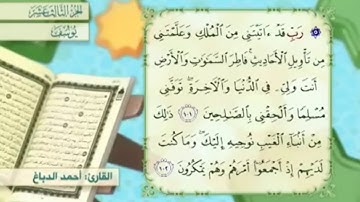 الجزء الثالث عشر
يوسف
۞ رَبِّ قَدْ ءَاتَيْتَنِى مِنَ ٱلْمُلْكِ وَعَلَّمْتَنِى
مِن تَأْوِيلِ ٱلْأَحَادِيثِ فَاطِرَ ٱلسَّمَٰوَٰتِ وَٱلْأَرْضِ
أَنتَ وَلِىِّۦ فِى ٱلدُّنْيَا وَٱلْءَاخِرَةِ تَوَفَّنِى
مُسْلِمًا وَأَلْحِقْنِى بِٱلصَّٰلِحِينَ ١٠١ ذَٰلِكَ
مِنْ أَنۢبَآءِ ٱلْغَيْبِ نُوحِيهِ إِلَيْكَ وَمَا كُنتَ
لَدَيْهِمْ إِذْ أَجْمَعُوٓا۟ أَمْرَهُمْ وَهُمْ يَمْكُرُونَ ١٠٢
القارئ: أحمد الدباغ